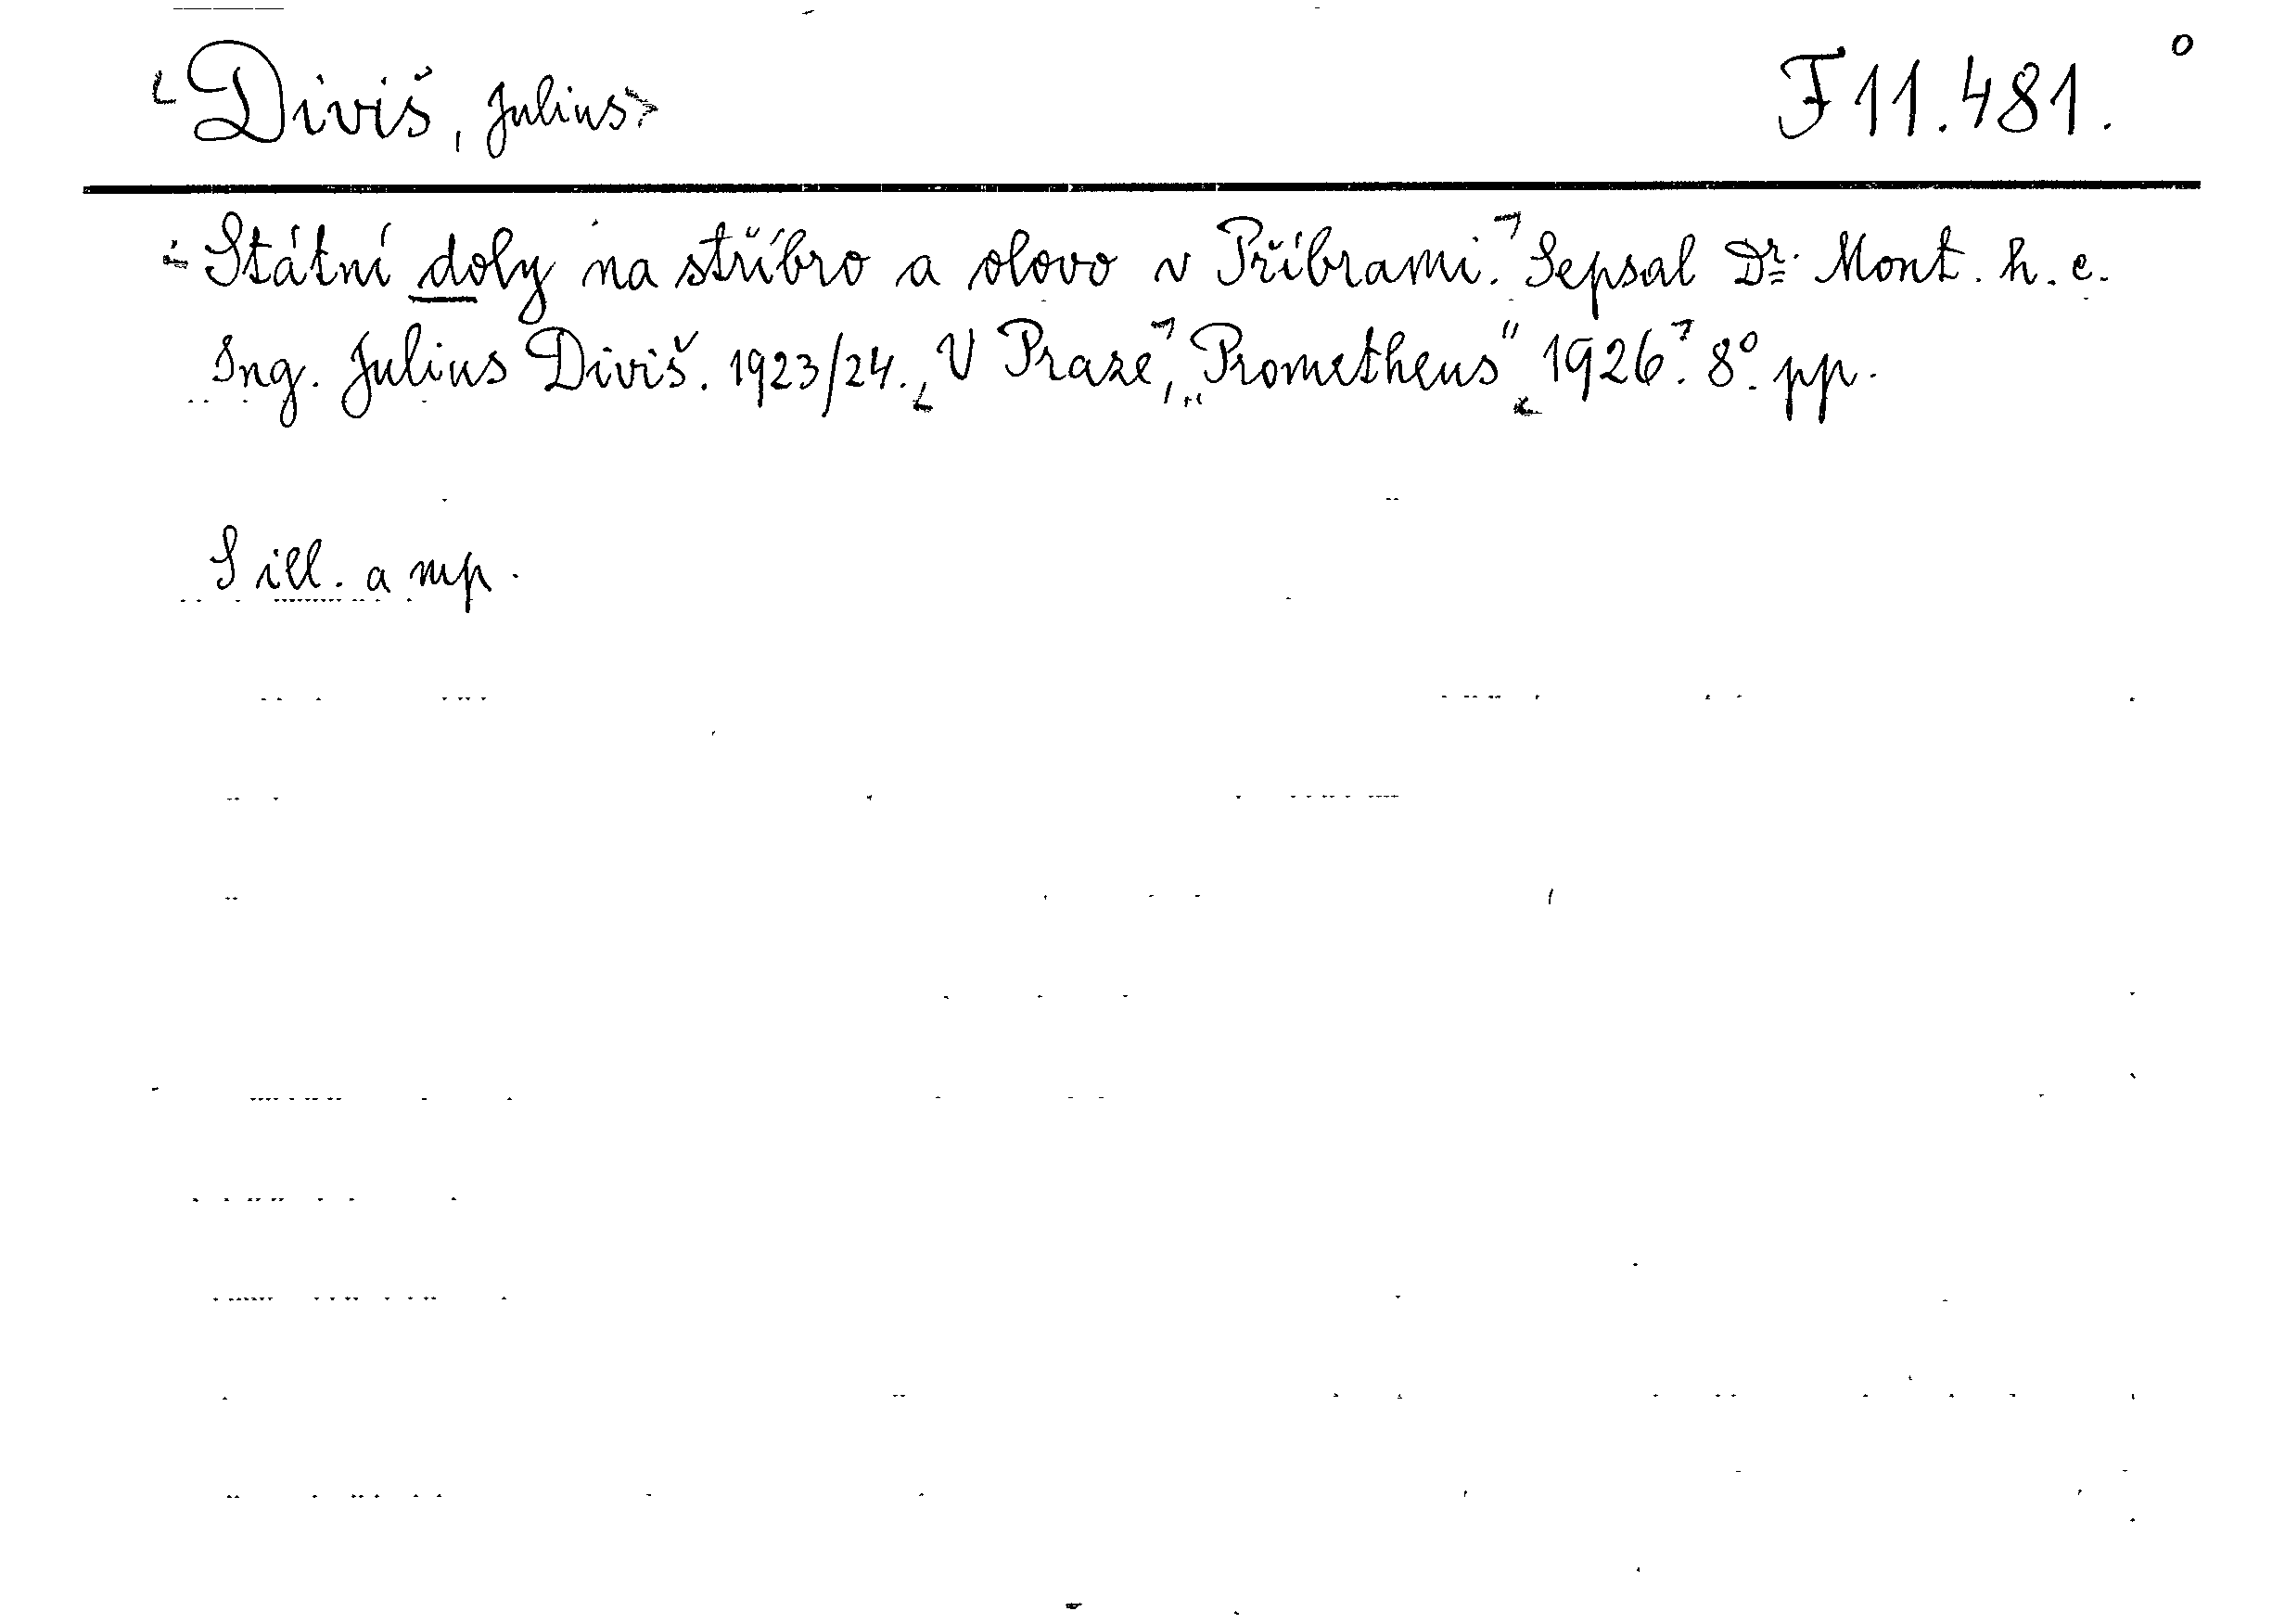 Diviš, Julius F 11.481.°
Státní doly na stříbro a olovo v Příbrami. Sepsal Dr. Mont. h. c.
Ing. Julius Diviš. 1923/24. V Praze, „Prometheus" 1926. 8°. pp.
S ill. a mp.